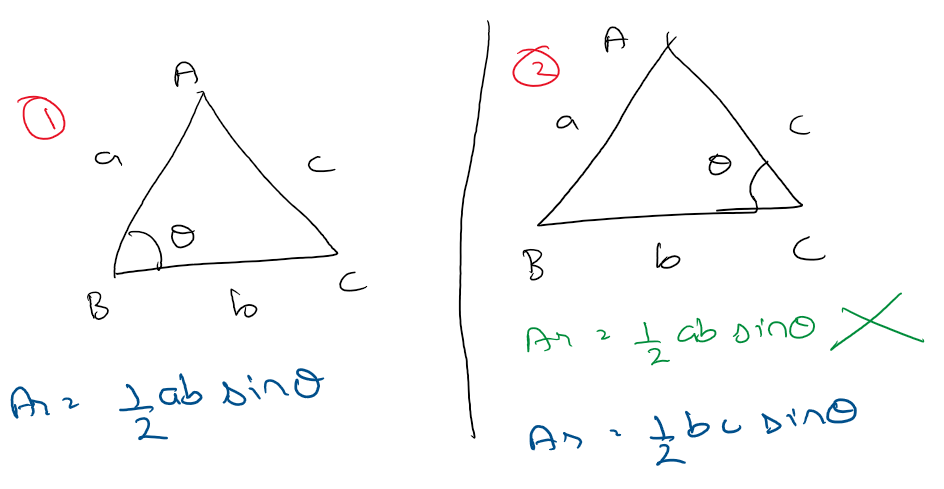 1
A
a
c
θ
B
b
C
Ar = 1/2 ab sinθ
2
A
a
c
θ
B
b
C
Ar = 1/2 ab sinθ ×
Ar = 1/2 bc sinθ